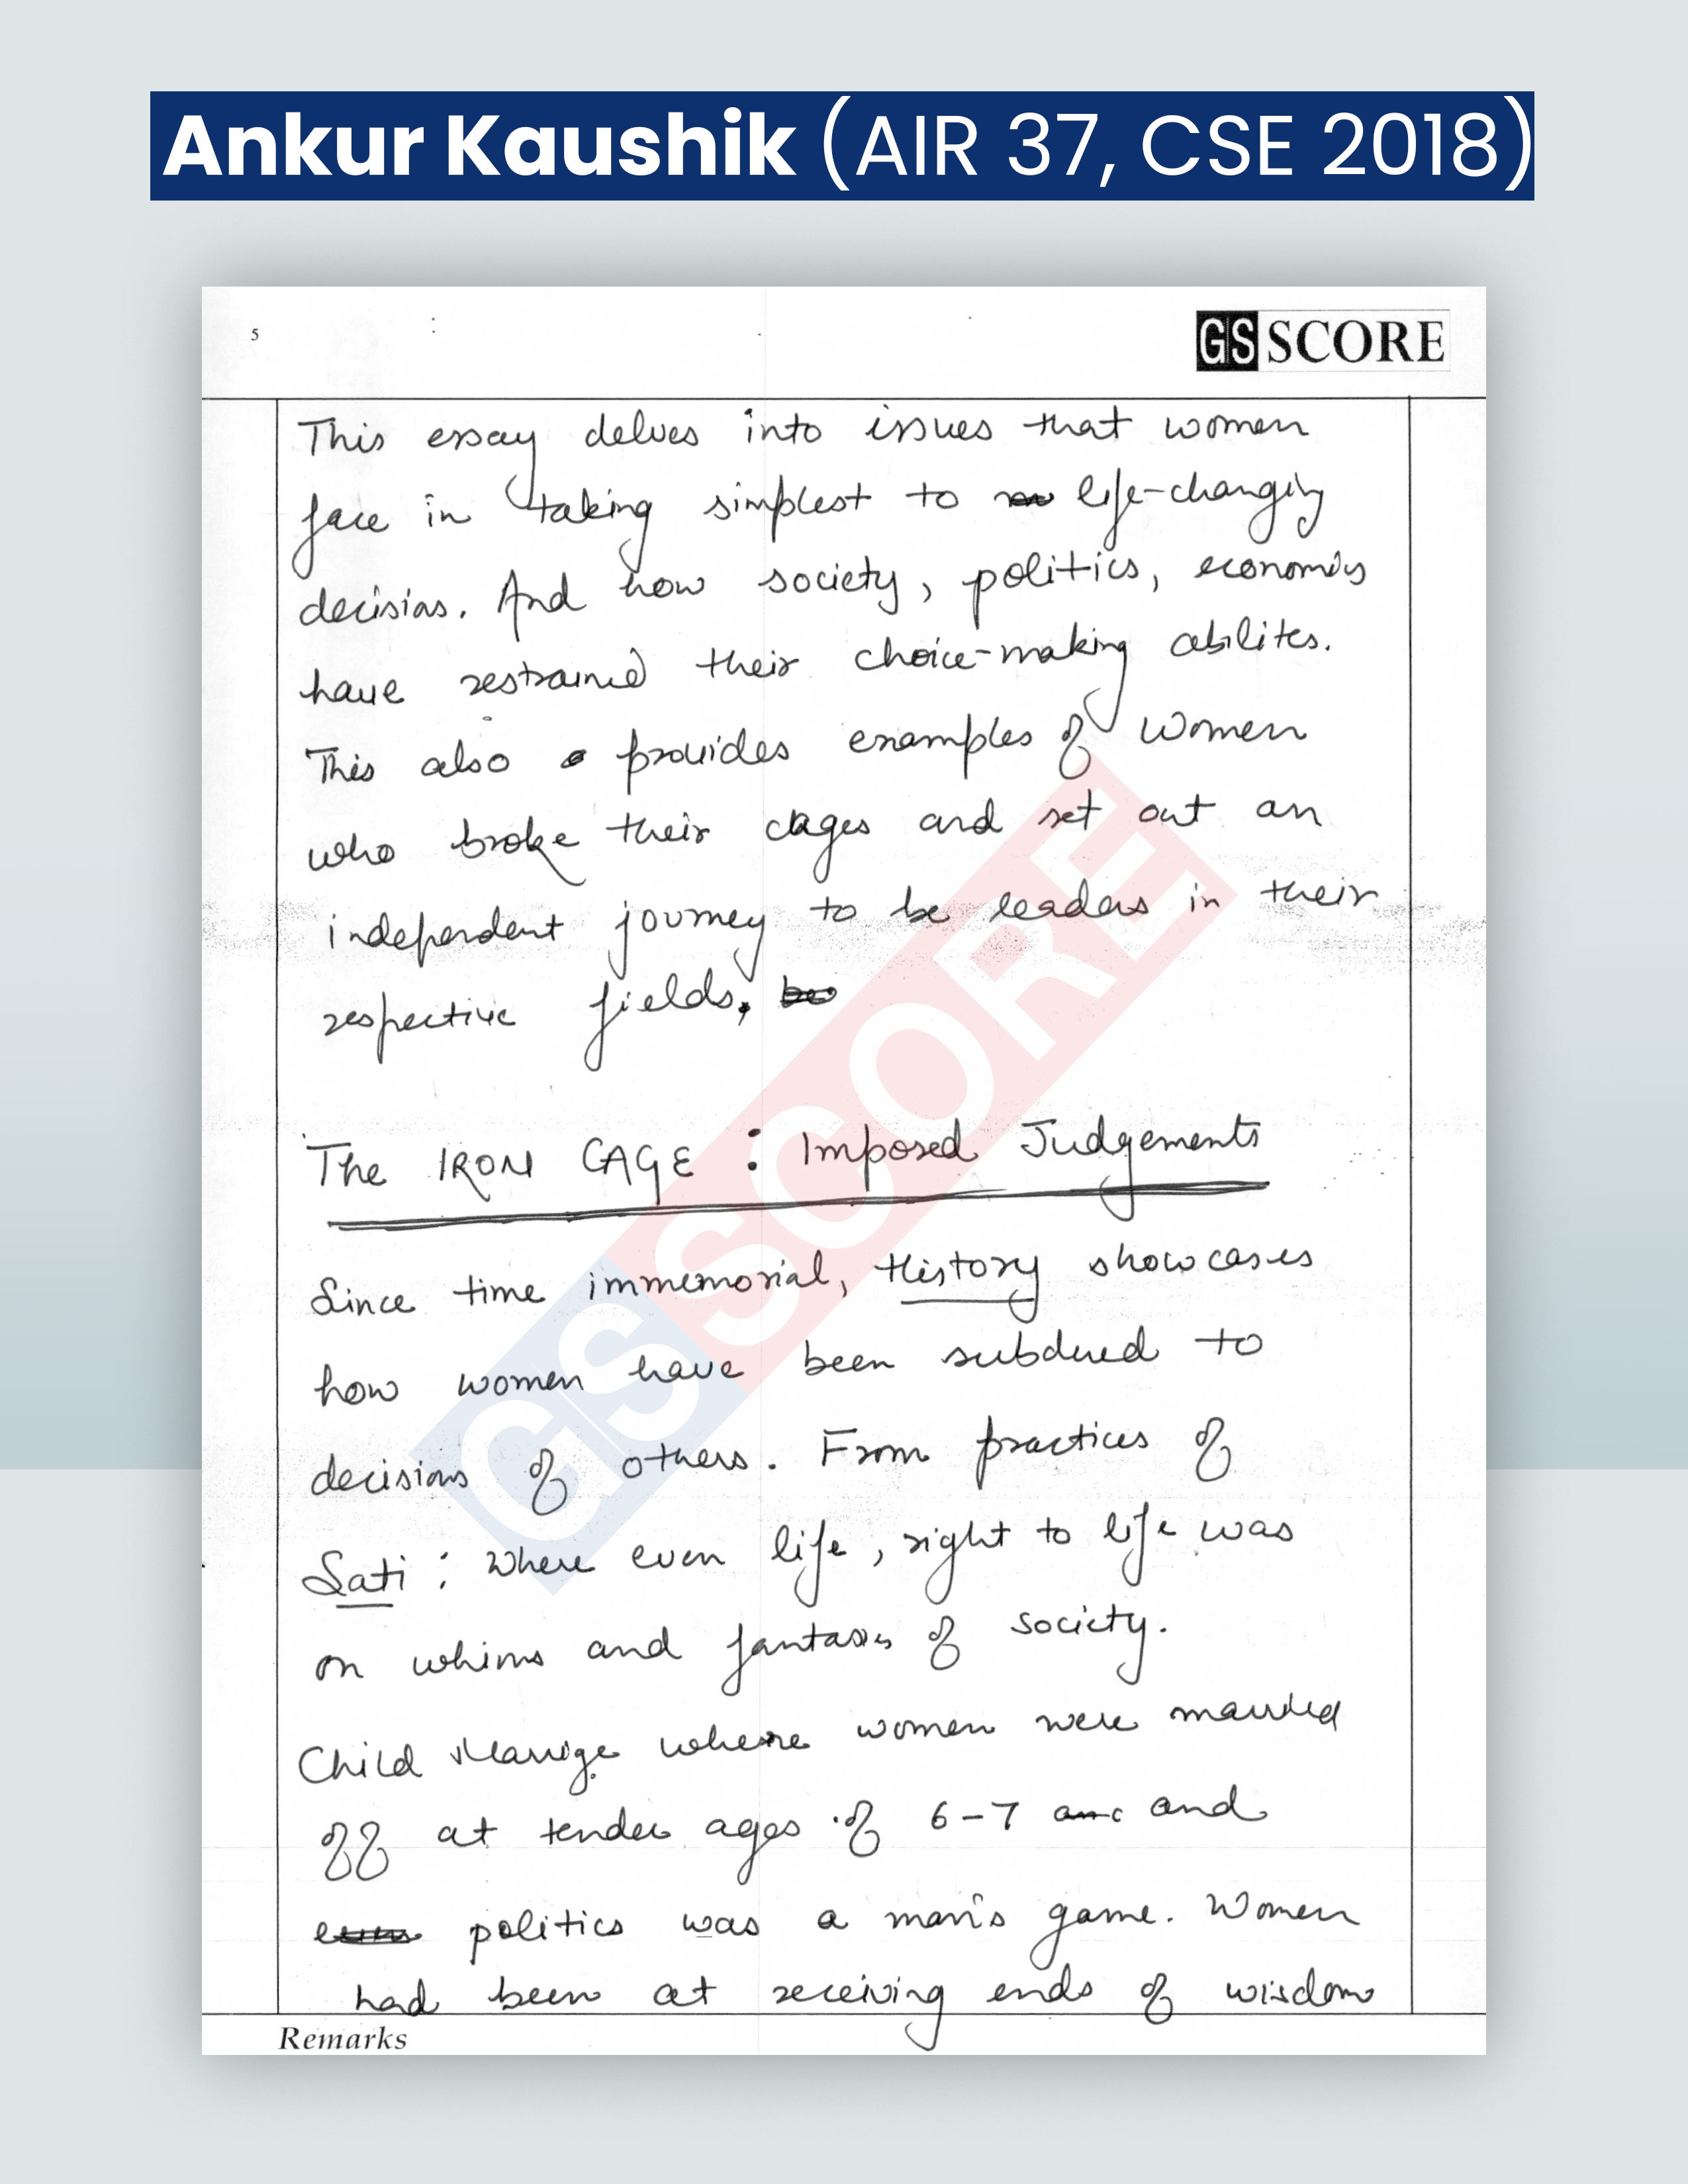 Ankur Kaushik (AIR 37, CSE 2018)
5
GS SCORE
This essay delves into issues that women
face in taking simplest to life-changing
decisions. And how society, politics, economics
have restrained their choice-making abilites.
This also provides examples of women
who broke their cages and set out an
independent journey to be leaders in their
respective fields.
The IRON CAGE : Imposed Judgements
Since time immemorial, History showcases
how women have been subdued to
decisions of others. From practices of
Sati : Where even life, right to life was
on whims and fantasies of society.
Child Marrige where women were married
off at tender ages of 6-7 and
politics was a man's game. Women
had been at receiving ends of wisdom
Remarks
GS SCORE